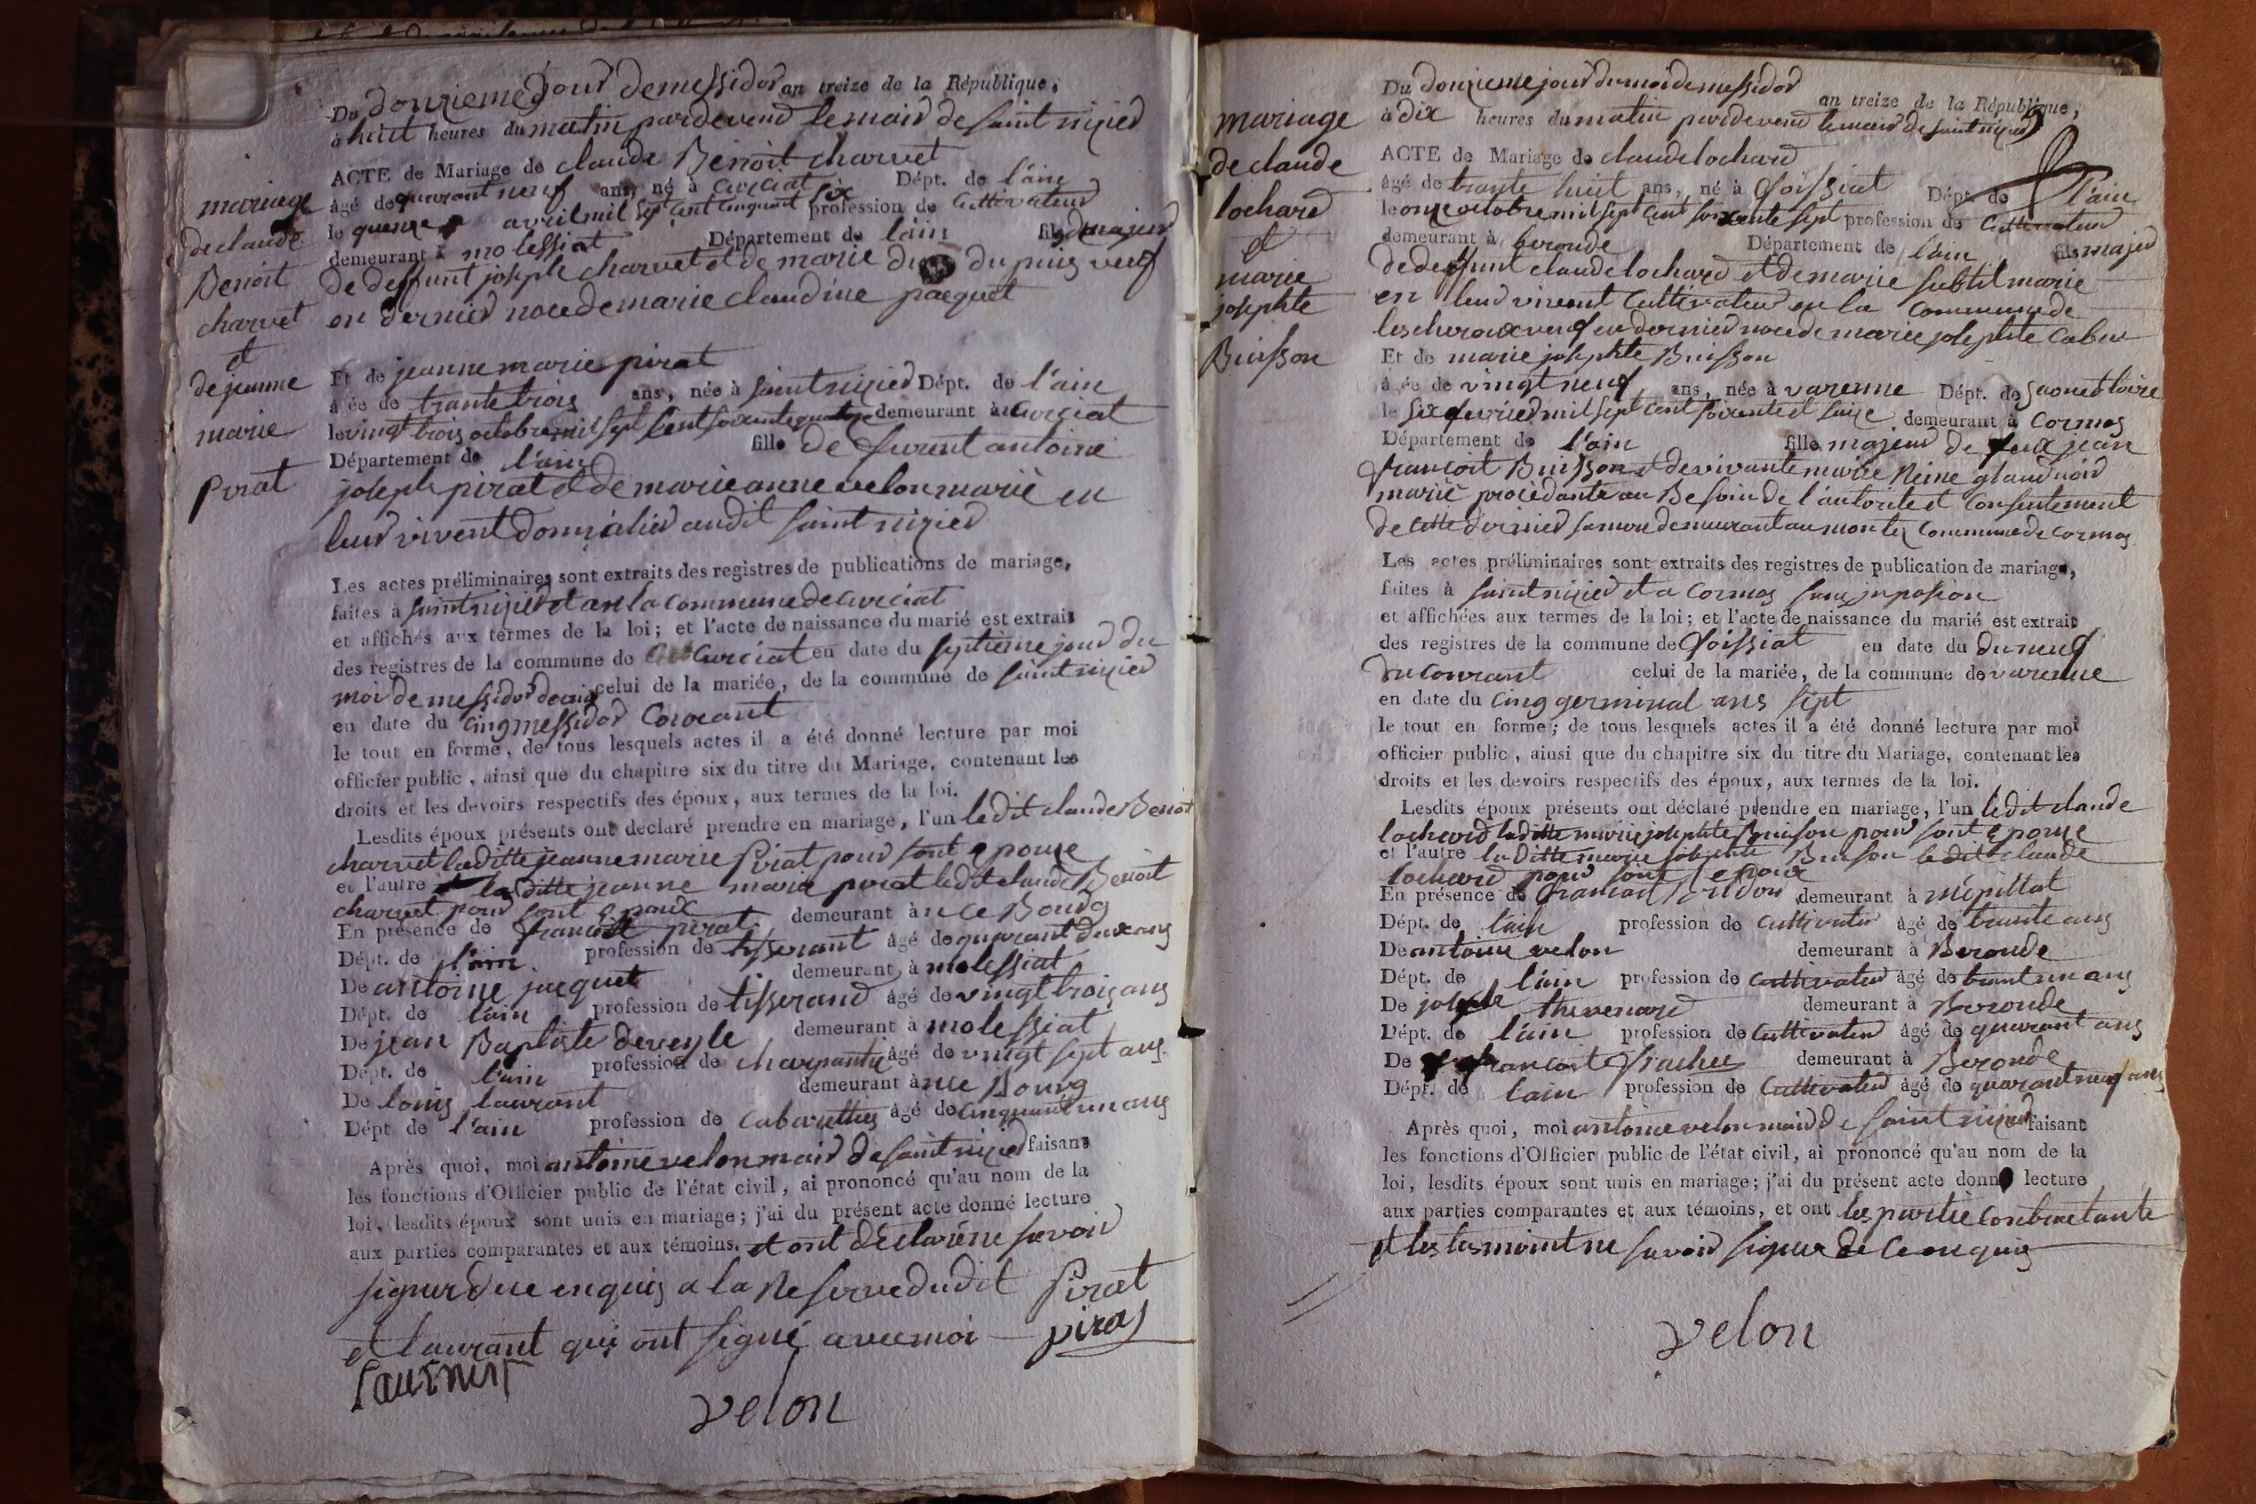 mariage
de claude
Benoit
charvet
et
de jeanne
marie
pirat
Du douzieme Jour de messidor an treize de la République,
à huit heures du matin pardevend le maird de saint nizied
ACTE de Mariage de claude Benoit charvet
âgé de quarant neuf ans, né à curciat Dépt. de l'ain
le quenze avril mil sept cent cinquant six profession de Cultivateur
demeurant à molessiat Département de l'ain fils majeur
de deffunt joseph charvet et de marie du puis veuf
en dernied noce de marie claudine pacquet
Et de jeanne marie pirat
âgée de trante trois ans, née à saint nizied Dépt. de l'ain
le vingt trois octobre mil sept cent soixante demeurant à curciat
Département de l'ain fille de furent antoine
joseph pirat et de marie anne velon marié en
leur vivent domicilied audit saint nizied
Les actes préliminaires sont extraits des registres de publications de mariage,
faites à saint nizied et an la commune de curciat
et affichés aux termes de la loi; et l'acte de naissance du marié est extrait
des registres de la commune de Curciat en date du septieme jour du
moi de messidor celui de la mariée, de la commune de saint nizied
en date du cinq messidor Courant
le tout en forme, de tous lesquels actes il a été donné lecture par moi
officier public, ainsi que du chapitre six du titre du Mariage, contenant les
droits et les devoirs respectifs des époux, aux termes de la loi.
Lesdits époux présents ont déclaré prendre en mariage, l'un ledit claude Benoit
charvet laditte jeanne marie Pirat pour sont epouse
et l'autre laditte jeanne marie pirat ledit claude Benoit
charvet pour sont epoux
En présence de francoit pirat demeurant à ce Bourg
Dépt. de l'ain profession de tisserant âgé de quarant deux ans
De antoine jacquet demeurant à molessiat
Dépt. de l'ain profession de tisserand âgé de vingt trois ans
De jean Baptiste deveyle demeurant à molessiat
Dépt. de l'ain profession de charpantié âgé de vingt sept ans
De louis laurant demeurant à ce Bourg
Dépt. de l'ain profession de cabarettier âgé de cinquant un ans
Après quoi, moi antoine velon maird de saint nizied faisant
les fonctions d'Officier public de l'état civil, ai prononcé qu'au nom de la
loi, lesdits époux sont unis en mariage; j'ai du présent acte donné lecture
aux parties comparantes et aux témoins. et ont déclaré ne savoir
signer de ce enquis a la Reserve dudit Pirat
et laurant qui ont signé avec moi piras
laurent
velon
mariage
de claude
lochard
et
marie
josephte
Buisson
Du douzieme jour du moi de messidor an treize de la République,
à dix heures du matin pardevend le maird de saint nizied
ACTE de Mariage de claude lochard
âgé de trante huit ans, né à foissiat Dépt. de l'ain
le onze octobre mil sept cent soixante sept profession de Cultivateur
demeurant à beronde Département de l'ain fils majeur
de deffunt claude lochard et de marie subtil marié
en leur vivent Cultivateur en la Commune de
lescheroux veuf en dernied noce de marie josephte Cabut
Et de marie josephte Buisson
âgée de vingt neuf ans, née à varenne Dépt. de Saone et loire
le six fevried mil sept cent soixante et saize demeurant à Cormos
Département de l'ain fille majeur de feux jean
francoit Buisson et de vivante marie Reine
marié procedante au Besoin de l'autorite et consentement
de cette dernied demeurant au montez Commune de cormos
Les actes préliminaires sont extraits des registres de publication de mariage,
faites à saint nizied et a Cormos
et affichées aux termes de la loi; et l'acte de naissance du marié est extrait
des registres de la commune de foissiat en date du du neuf
du Courant celui de la mariée, de la commune de varenne
en date du cinq germinal ans sept
le tout en forme; de tous lesquels actes il a été donné lecture par moi
officier public, ainsi que du chapitre six du titre du Mariage, contenant les
droits et les devoirs respectifs des époux, aux termes de la loi.
Lesdits époux présents ont déclaré prendre en mariage, l'un ledit claude
lochard laditte marie josephte Buisson pour sont epouse
et l'autre laditte marie josephte Buisson ledit claude
lochard pour sont epoux
En présence de francoit demeurant à mépillat
Dépt. de l'ain profession de Cultivateur âgé de trante ans
De antoine velon demeurant à Beronde
Dépt. de l'ain profession de Cultivateur âgé de trant un ans
De joseph thevenard demeurant à Beronde
Dépt. de l'ain profession de Cultivateur âgé de quarant ans
De francoit demeurant à Beronde
Dépt. de l'ain profession de Cultivateur âgé de quarant neuf ans
Après quoi, moi antoine velon maird de saint nizied faisant
les fonctions d'Officier public de l'état civil, ai prononcé qu'au nom de la
loi, lesdits époux sont unis en mariage; j'ai du présent acte donné lecture
aux parties comparantes et aux témoins, et ont les partie Contractante
et les tesmoint ne savoir signer de ce enquis
velon